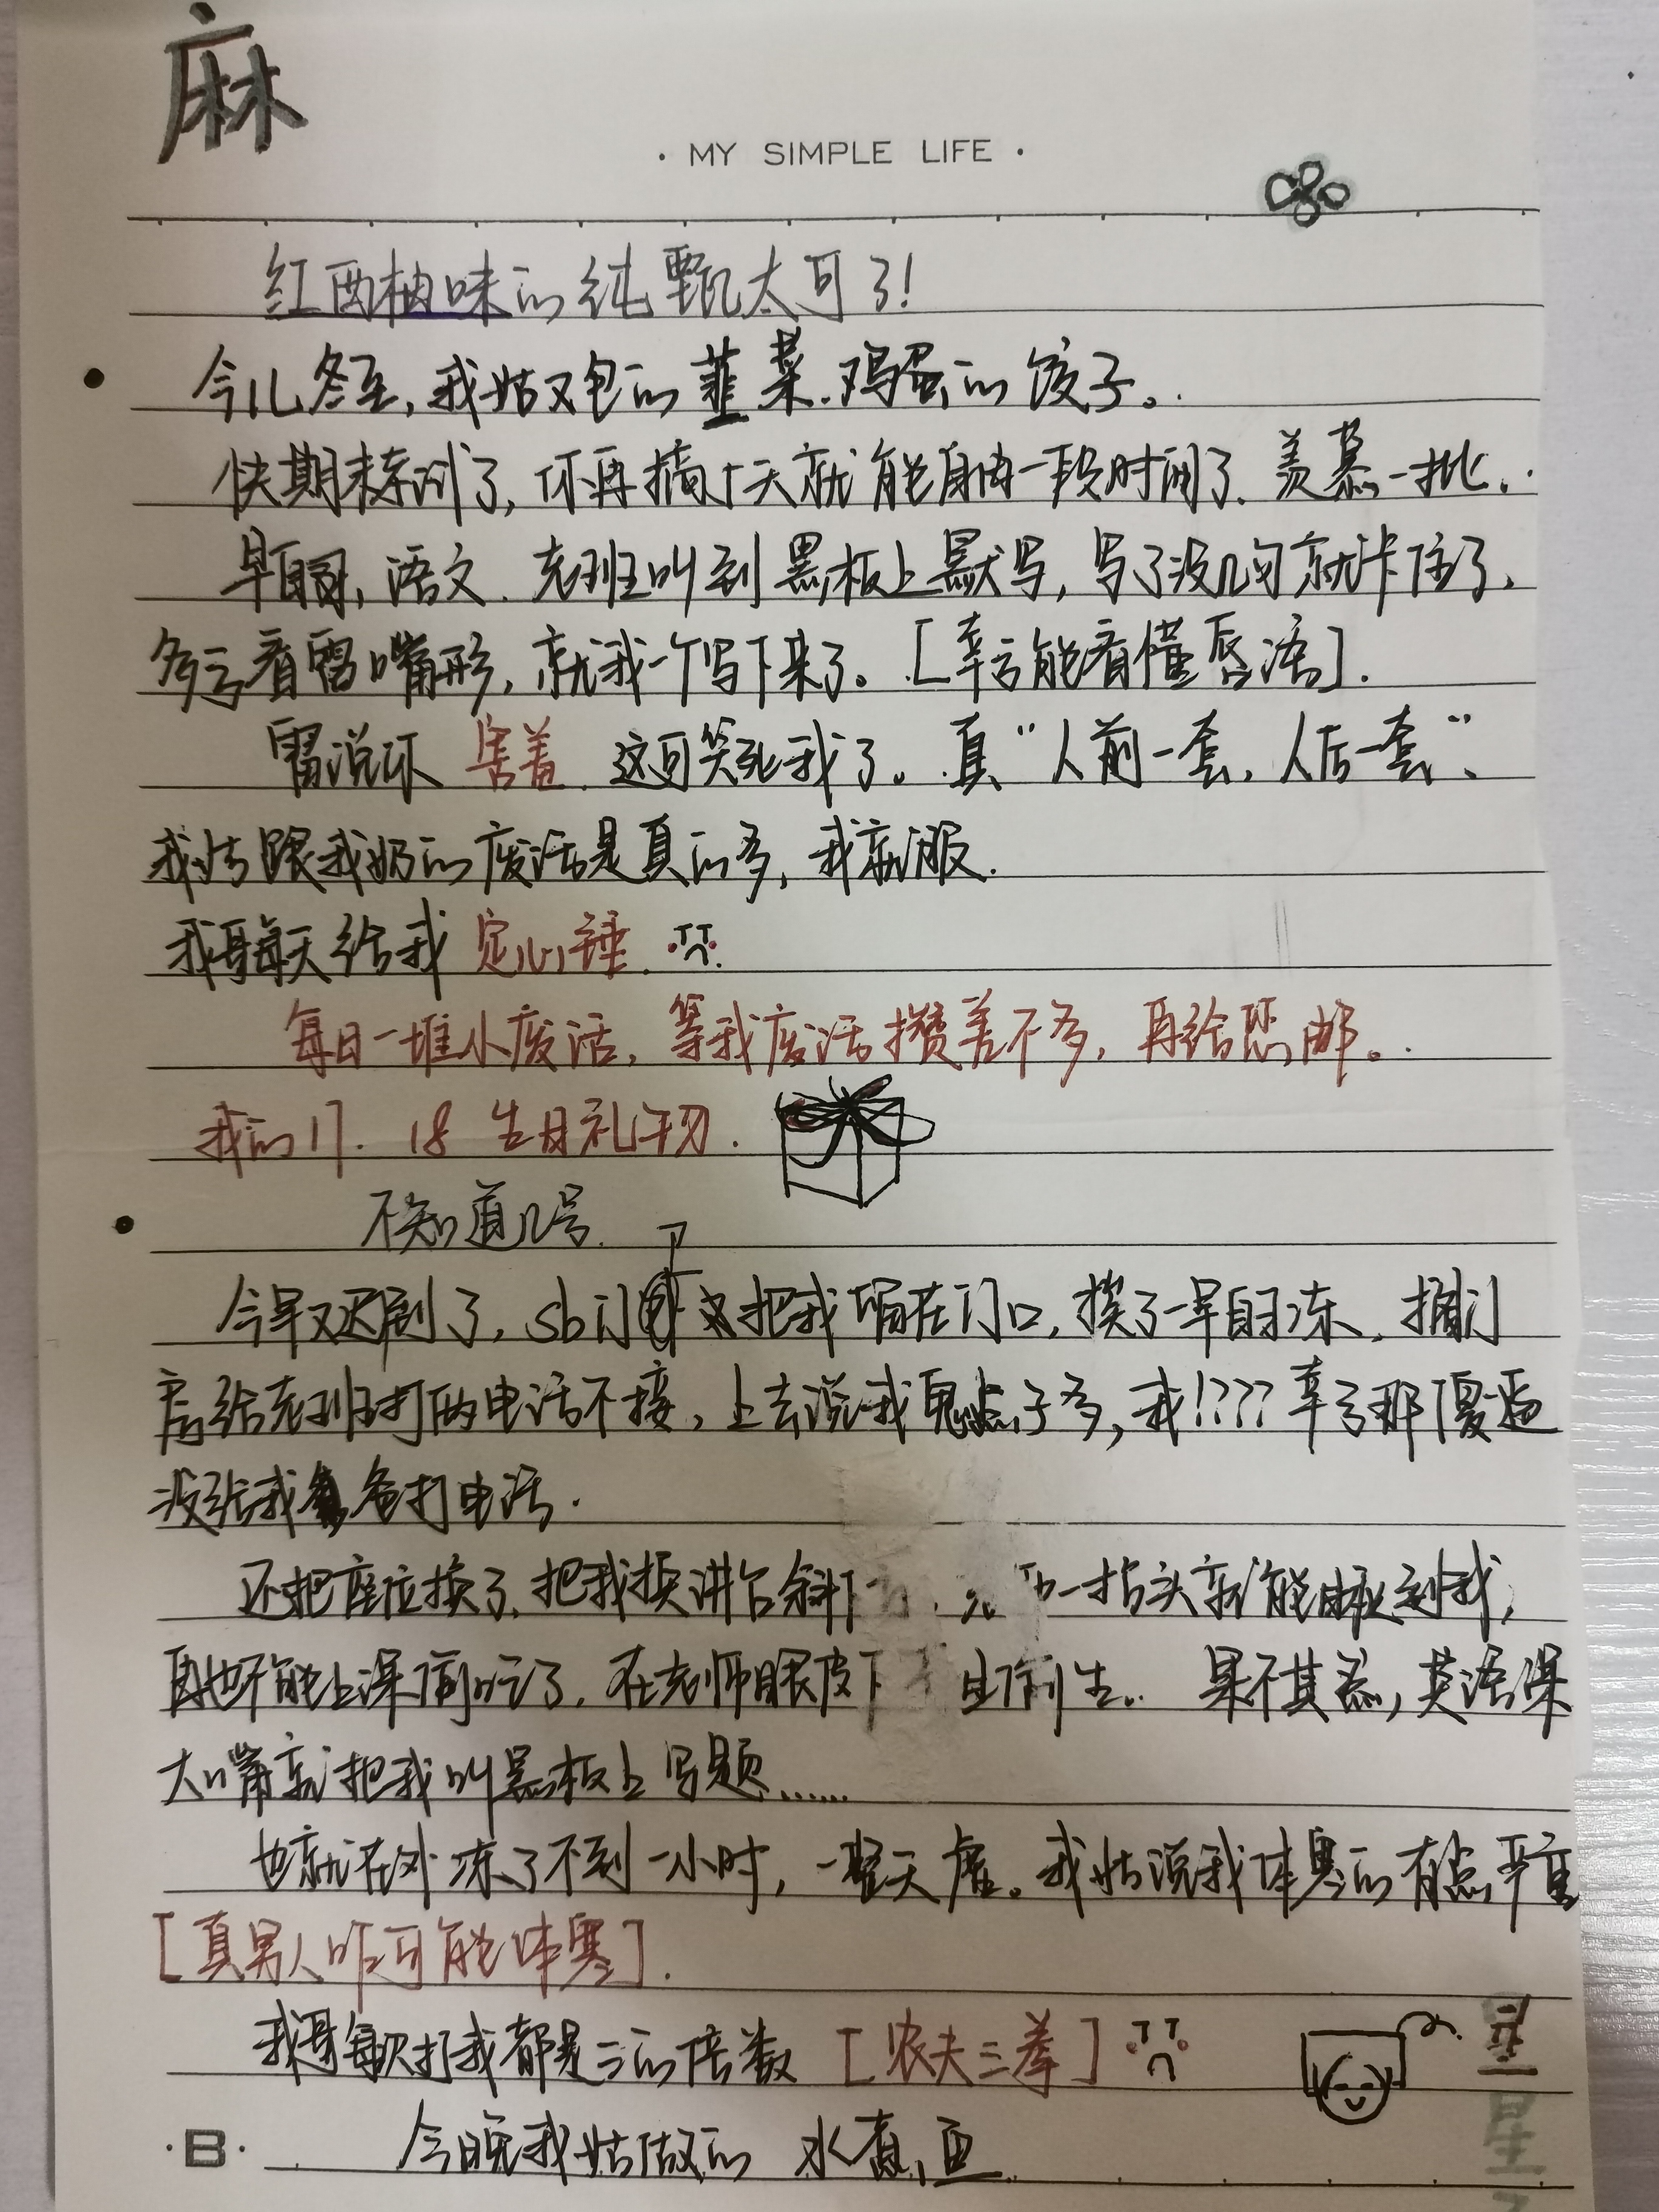 麻
· MY SIMPLE LIFE ·
红西柚味的纯甄太可了!
今儿冬至,我姑又包的韭菜.鸡蛋的饺子。
快期末考试了,你再搞十天就能自由一段时间了.羡慕一批.
早自习,语文.老班叫到黑板上默写,写了没几句就卡住了,
多亏看雷嘴形,就我一个写下来了。[幸亏能看懂唇语].
雷说你 害羞.这可笑死我了。真“人前一套,人后一套”、
我姑跟我奶的废话是真的多,我就服.
我哥每天给我 定心锤.
每日一堆小废话,等我废话攒差不多,再给您邮。
我的17. 18 生日礼物.
不知道几号.
今早又迟到了, sb门 把我留在门口,挨了一早自习冻.搁门
房给老班打的电话不接,上去说我鬼点子多,我!???幸亏那傻逼
没给我爸打电话.
还把座位换了.把我换讲台斜 一指头就能戳到我,
再也不能上课偷吃了.在老师眼皮下 果不其然,英语课
大嘴就把我叫黑板上写题......
也就在外冻了不到一小时,一整天虚。我姑说我体寒的有点严重
[真男人咋可能体寒].
我哥每次打我都是三的倍数 [农夫三拳]
星
星
·B· 今晚我姑做的 水煮鱼.